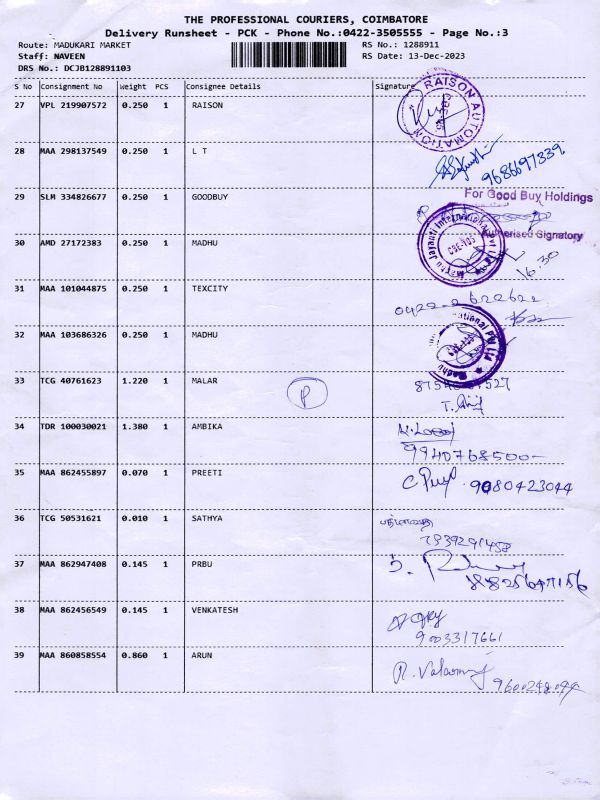 THE PROFESSIONAL COURIERS, COIMBATORE
Delivery Runsheet - PCK - Phone No.:0422-3505555 - Page No.:3
Route: MADUKARI MARKET RS No.: 1288911
Staff: NAVEEN RS Date: 13-Dec-2023
DRS No.: DCJB128891103
S No Consignment No Weight PCS Consignee Details Signature
27 VPL 219907572 0.250 1 RAISON
RAISON AUTOMATION
28 MAA 298137549 0.250 1 L T
9686697339
29 SLM 334826677 0.250 1 GOODBUY
For Good Buy Holdings
Authorised Signatory
30 AMD 27172383 0.250 1 MADHU
Madhu Jayanti International Pvt Ltd
16.30
31 MAA 101044875 0.250 1 TEXCITY
0422-2622622
32 MAA 103686326 0.250 1 MADHU
33 TCG 40761623 1.220 1 MALAR
P
34 TDR 100030021 1.380 1 AMBIKA
9940768500-
35 MAA 862455897 0.070 1 PREETI
9080423044
36 TCG 50531621 0.010 1 SATHYA
7539291458
37 MAA 862947408 0.145 1 PRBU
38 MAA 862456549 0.145 1 VENKATESH
9003317661
39 MAA 860858554 0.860 1 ARUN
9600248044